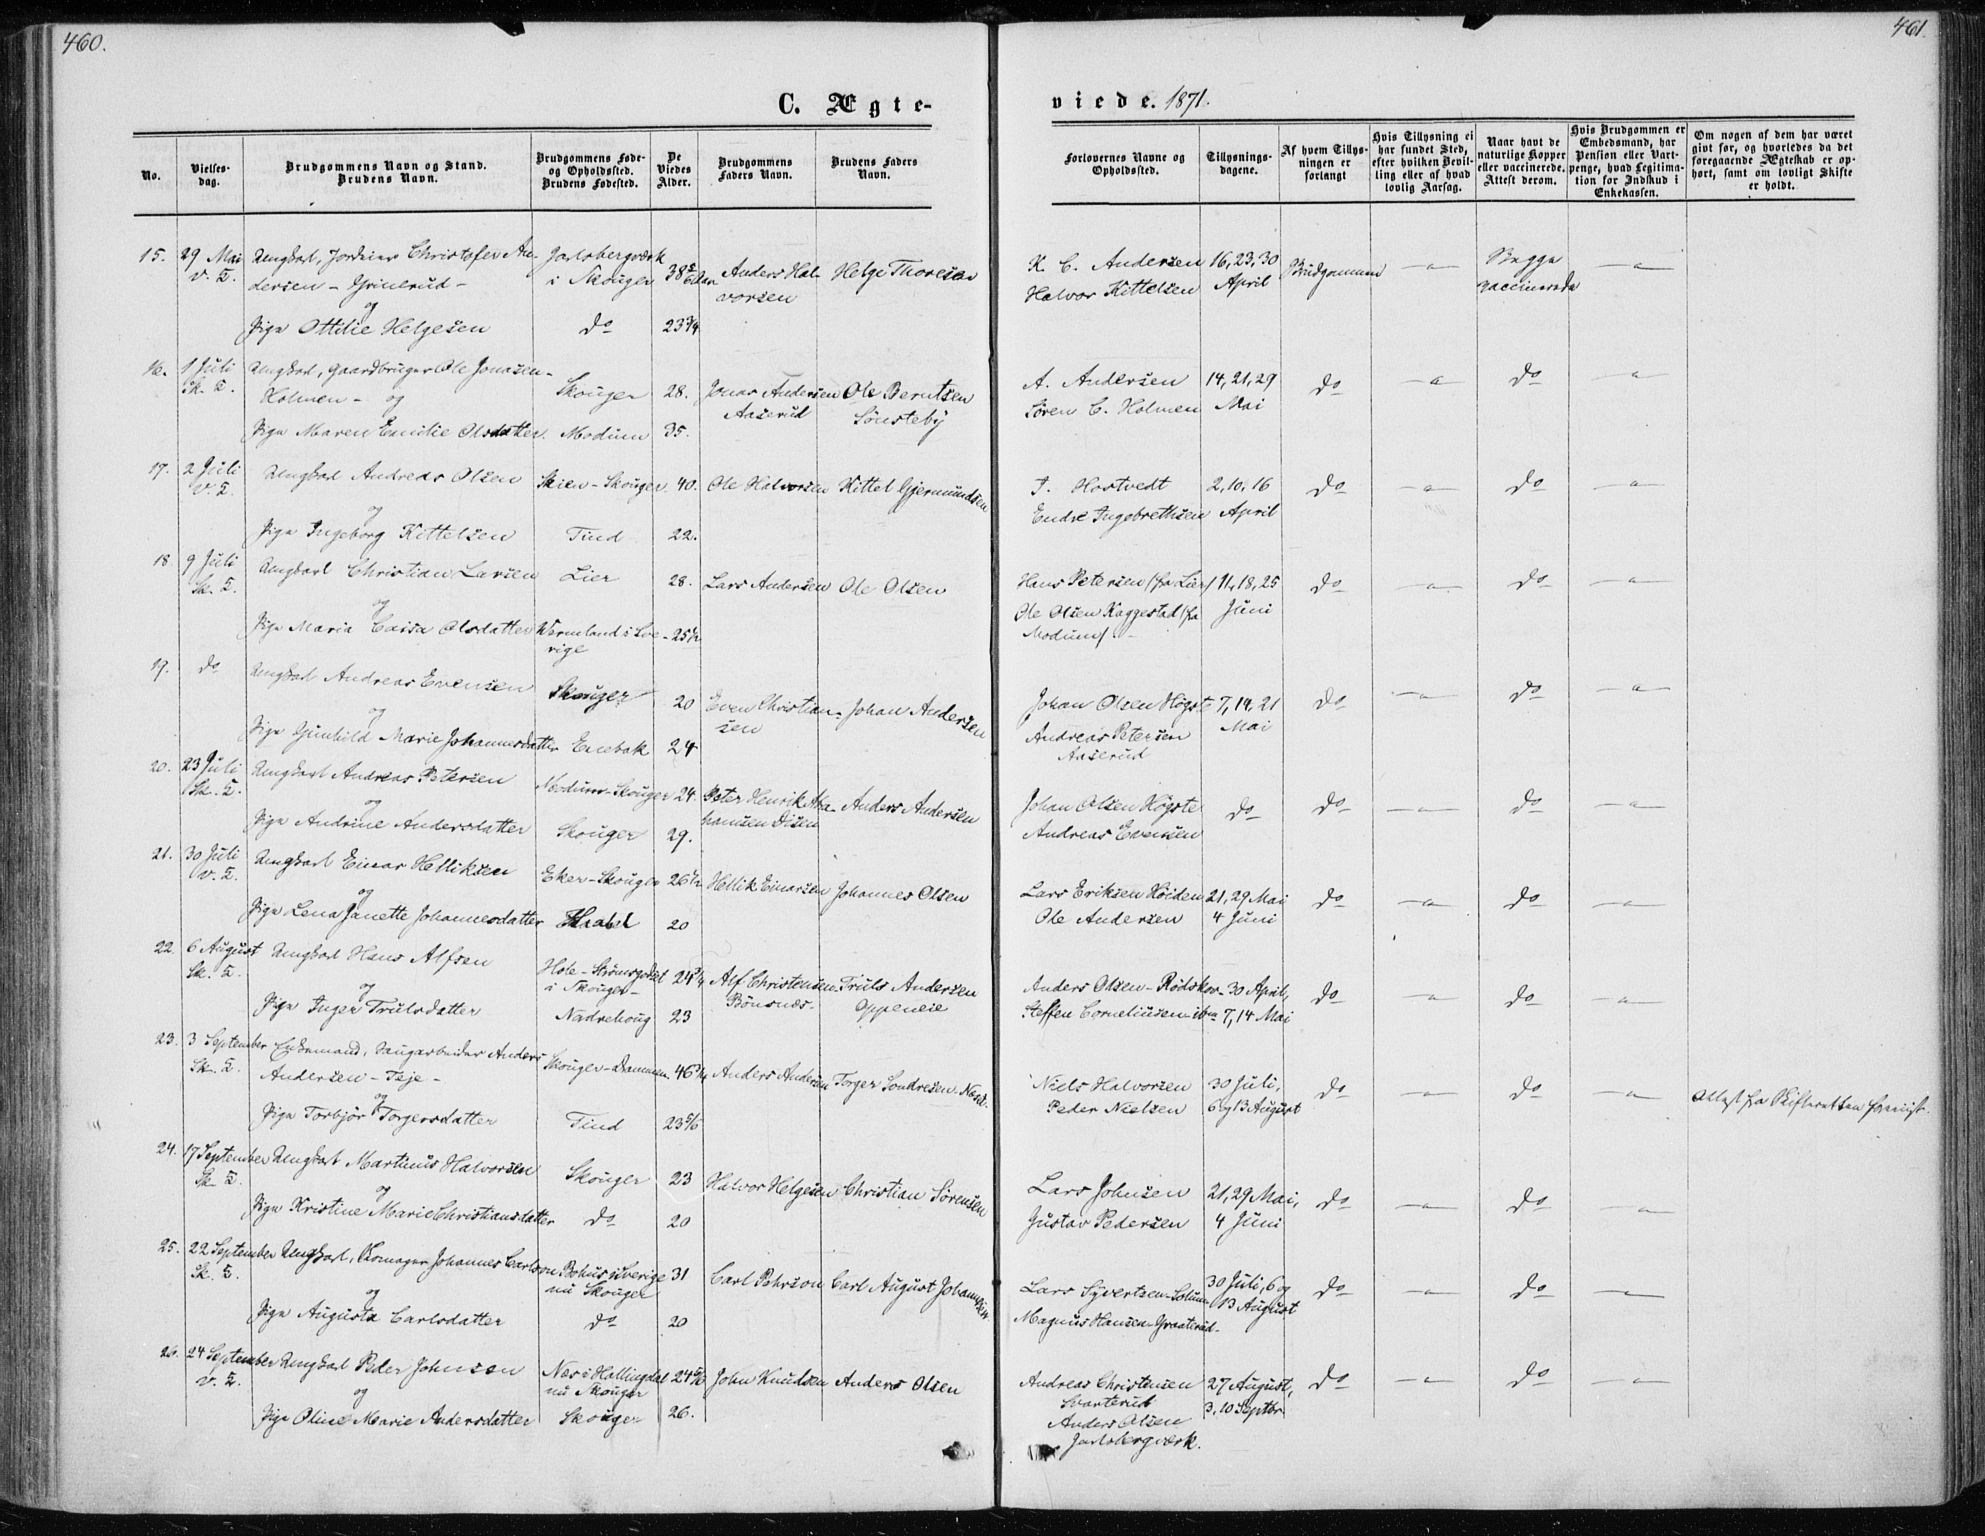 460.
461.
C. Ægte-
viede. 1871.
No.
Vielses-
dag.
Brudgommens Navn og Stand.
Brudens Navn.
Brudgommens Føde-
og Opholdssted.
Brudens Fødested.
De
Viedes
Alder.
Brudgommens
Faders Navn.
Brudens Faders
Navn.
Forlovernes Navne og
Opholdssted.
Tillysnings-
dagene.
Af hvem Tillys-
ningen er
forlangt
Hvis Tillysning ei
har fundet Sted,
efter hvilken Bevil-
ling eller af hvad
lovlig Aarsag.
Naar havt de
naturlige Kopper
eller vaccinerede.
Attest derom.
Hvis Brudgommen er
Embedsmand, har
Pension eller Vart-
penge, hvad Legitima-
tion for Indskud i
Enkekassen.
Om nogen af dem har været
givt før, og hvorledes da det
foregaaende Ægteskab er op-
hort, samt om lovligt Skifte
er holdt.
15. 29 Mai Ungkarl, Christofer An- Jarlsbergværk 38 5/6 Aar Anders Hal- Helge Thoresen K. C. Andersen 16, 23, 30 Brudgommen —"— Begge —"—
V. K. dersen - Grinerud - i Skouger vorsen Halvor Kittelsen April vaccinerede
og
Pige Ottilie Helgesen do 23 3/4
16. 1 Juli Ungkarl, Gaardbruger Ole Jonasen- Skouger 28. Jonas Andersen Ole Berntsen A. Andersen 14, 21, 29 do —"— do —"—
Sk. K. Holmen - og Aaserud Sønsteby Søren C. Holmen Mai
Pige Maren Emilie Olsdatter. Modum 35.
17. 2 Juli Ungkarl Andreas Olsen Skien - Skouger 40. Ole Halvorsen Kittel Gjermundsen T. Hostvedt 2, 10, 16 do —"— do —"—
V. K. og Endre Ingebrethsen April
Pige Ingeborg Kittelsen Tind 22.
18 9 Juli Ungkarl Christian Larsen Lier 28. Lars Andersen Ole Olsen Hans Petersen (fra Lier) 11, 18, 25 do —"— do —"—
Sk. K. og Ole Olsen Kaggestad (fra Juni
Pige Maria Caisa Olsdatter Wermland i Sve- 25 1/2 Modum) -
rige
19. do Ungkarl Andreas Evensen Skouger 20 Even Christian- Johan Andersen Johan Olsen Høgste 7, 14, 21 do —"— do —"—
og sen Andreas Petersen Mai
Pige Gunhild Marie Johannesdatter Enebak 24 Aaserud
20. 23 Juli Ungkarl Andreas Petersen Modum - Skouger 24. Peter Henrik Anders Andersen Johan Olsen Høgste do do —"— do —"—
Sk. K. og Andreas Evensen
Pige Andrine Andersdatter Skouger 29.
21. 30 Juli Ungkarl Einar Helliksen Eker - Skouger 26 1/2 Hellik Einarsen Johannes Olsen Lars Eriksen Høiden 21, 29 Mai do —"— do —"—
V. K. og Ole Andersen 4 Juni
Pige Lena Janette Johannesdatter 20
22. 6 August Ungkarl Hans Alfsen Hole - Strømsgodset 24 3/4 Alf Christensen Truls Andersen Anders Olsen - Rødskov - 30 April, do —"— do —"—
Sk. K. og i Skouger - Bønsnæs. Oppeneie Steffen Corneliusen - ibm 7, 14 Mai
Pige Inger Trulsdatter Nadrehoug 23
23. 3 September Enkemand, Saugarbeider Anders Skouger - Drammen. 46 3/4 Anders Andersen Torger Sondresen - Niels Halvorsen 30 Juli, do —"— do —"— Attest fra Skifteretten forevist.
Sk. K. Andersen - Teje - Peder Nielsen 6 og 13 August
og
Pige Torbjør Torgersdatter Tind 23 5/6
24. 17 September Ungkarl Martinus Halvorsen Skouger 23 Halvor Helgesen Christian Sørensen Lars Johnsen 21, 29 Mai, do —"— do —"—
Sk. K. og Gustav Pedersen 4 Juni
Pige Kristine Marie Christiansdatter do 20
25. 22 September Ungkarl, Skomager Johannes Carlson Bohus i Sverige 31 Carl Pehrson Carl August Johannesen Lars Syvertsen - Solum 30 Juli, 6 og do —"— do —"—
Sk. K. og nu Skouger Magnus Hansen - Graaterud - 13 August
Pige Augusta Carlsdatter do 20
26. 24 September Ungkarl Peder Johnsen Næs i Hallingdal 24 5/6 John Knudsen Anders Olsen Andreas Christensen 27 August, do —"— do —"—
V. K. og nu Skouger Svarterud 3, 10 Septbr.
Pige Oline Marie Andersdatter Skouger 26. Anders Olsen
Jarlsbergværk.